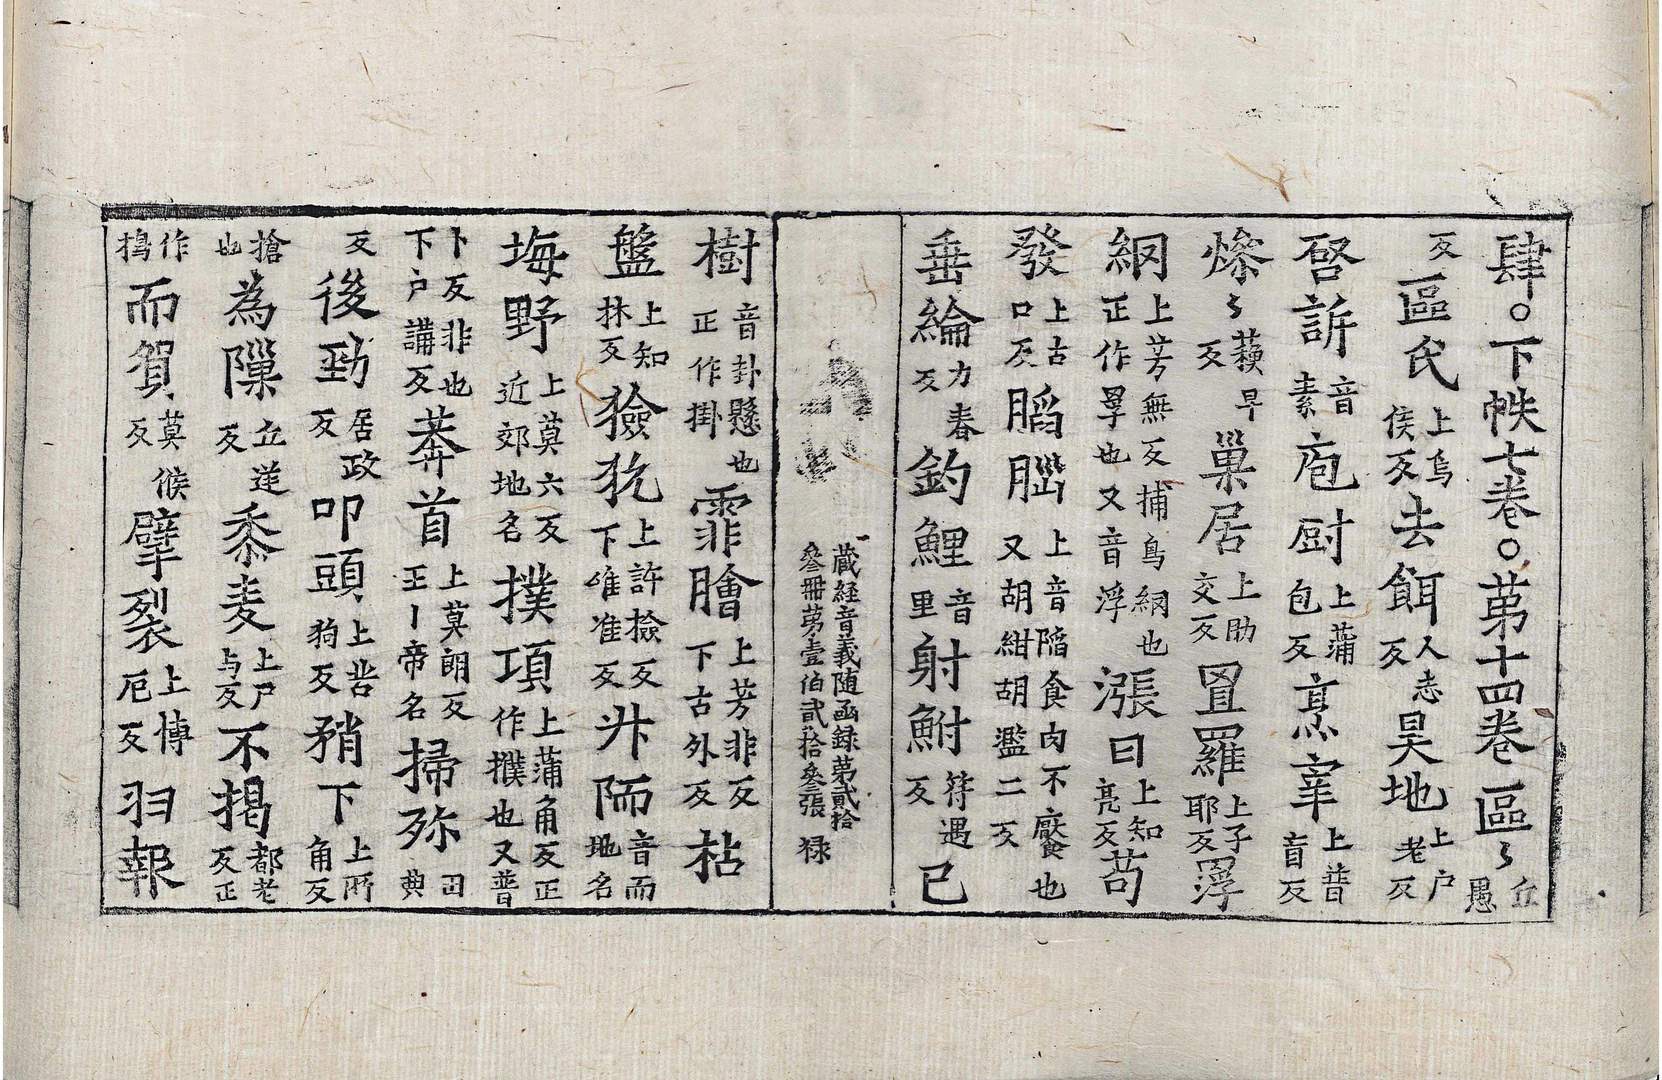 肆○下帙七卷○第十四卷區〻丘愚
反區氏上烏侯反去餌人志反昊地上戶老反
啓訴音素庖厨上蒲包反烹宰上普盲反
燦〻蘓早反巢居上助交反罝羅上子耶反罦
網上芳無反捕鳥網也正作罦也又音浮漲日上知亮反苟
發上古口反䐄腦上音陷食肉不猒也又胡紺胡濫二反
垂綸力春反釣鯉音里射鮒符遇反已
藏経音義随函録第貳拾
叄冊第壹伯貳拾叄張 禄
樹音卦懸也正作掛霏膾上芳非反下古外反枯
盤上知林反獫狁上許撿反下唯准反圤陑音而地名
坶野上莫六反近郊地名撲項上蒲角反正作撲也又普
卜反非也下户講反莽首上莫朗反王丨帝名掃殄田典
反後勁居政反叩頭上苦狗反矟下上所角反
搶也為隟丘逆反黍麦上戶与反不搗都老反正
作擣而貿莫候反擘裂上博厄反羽報